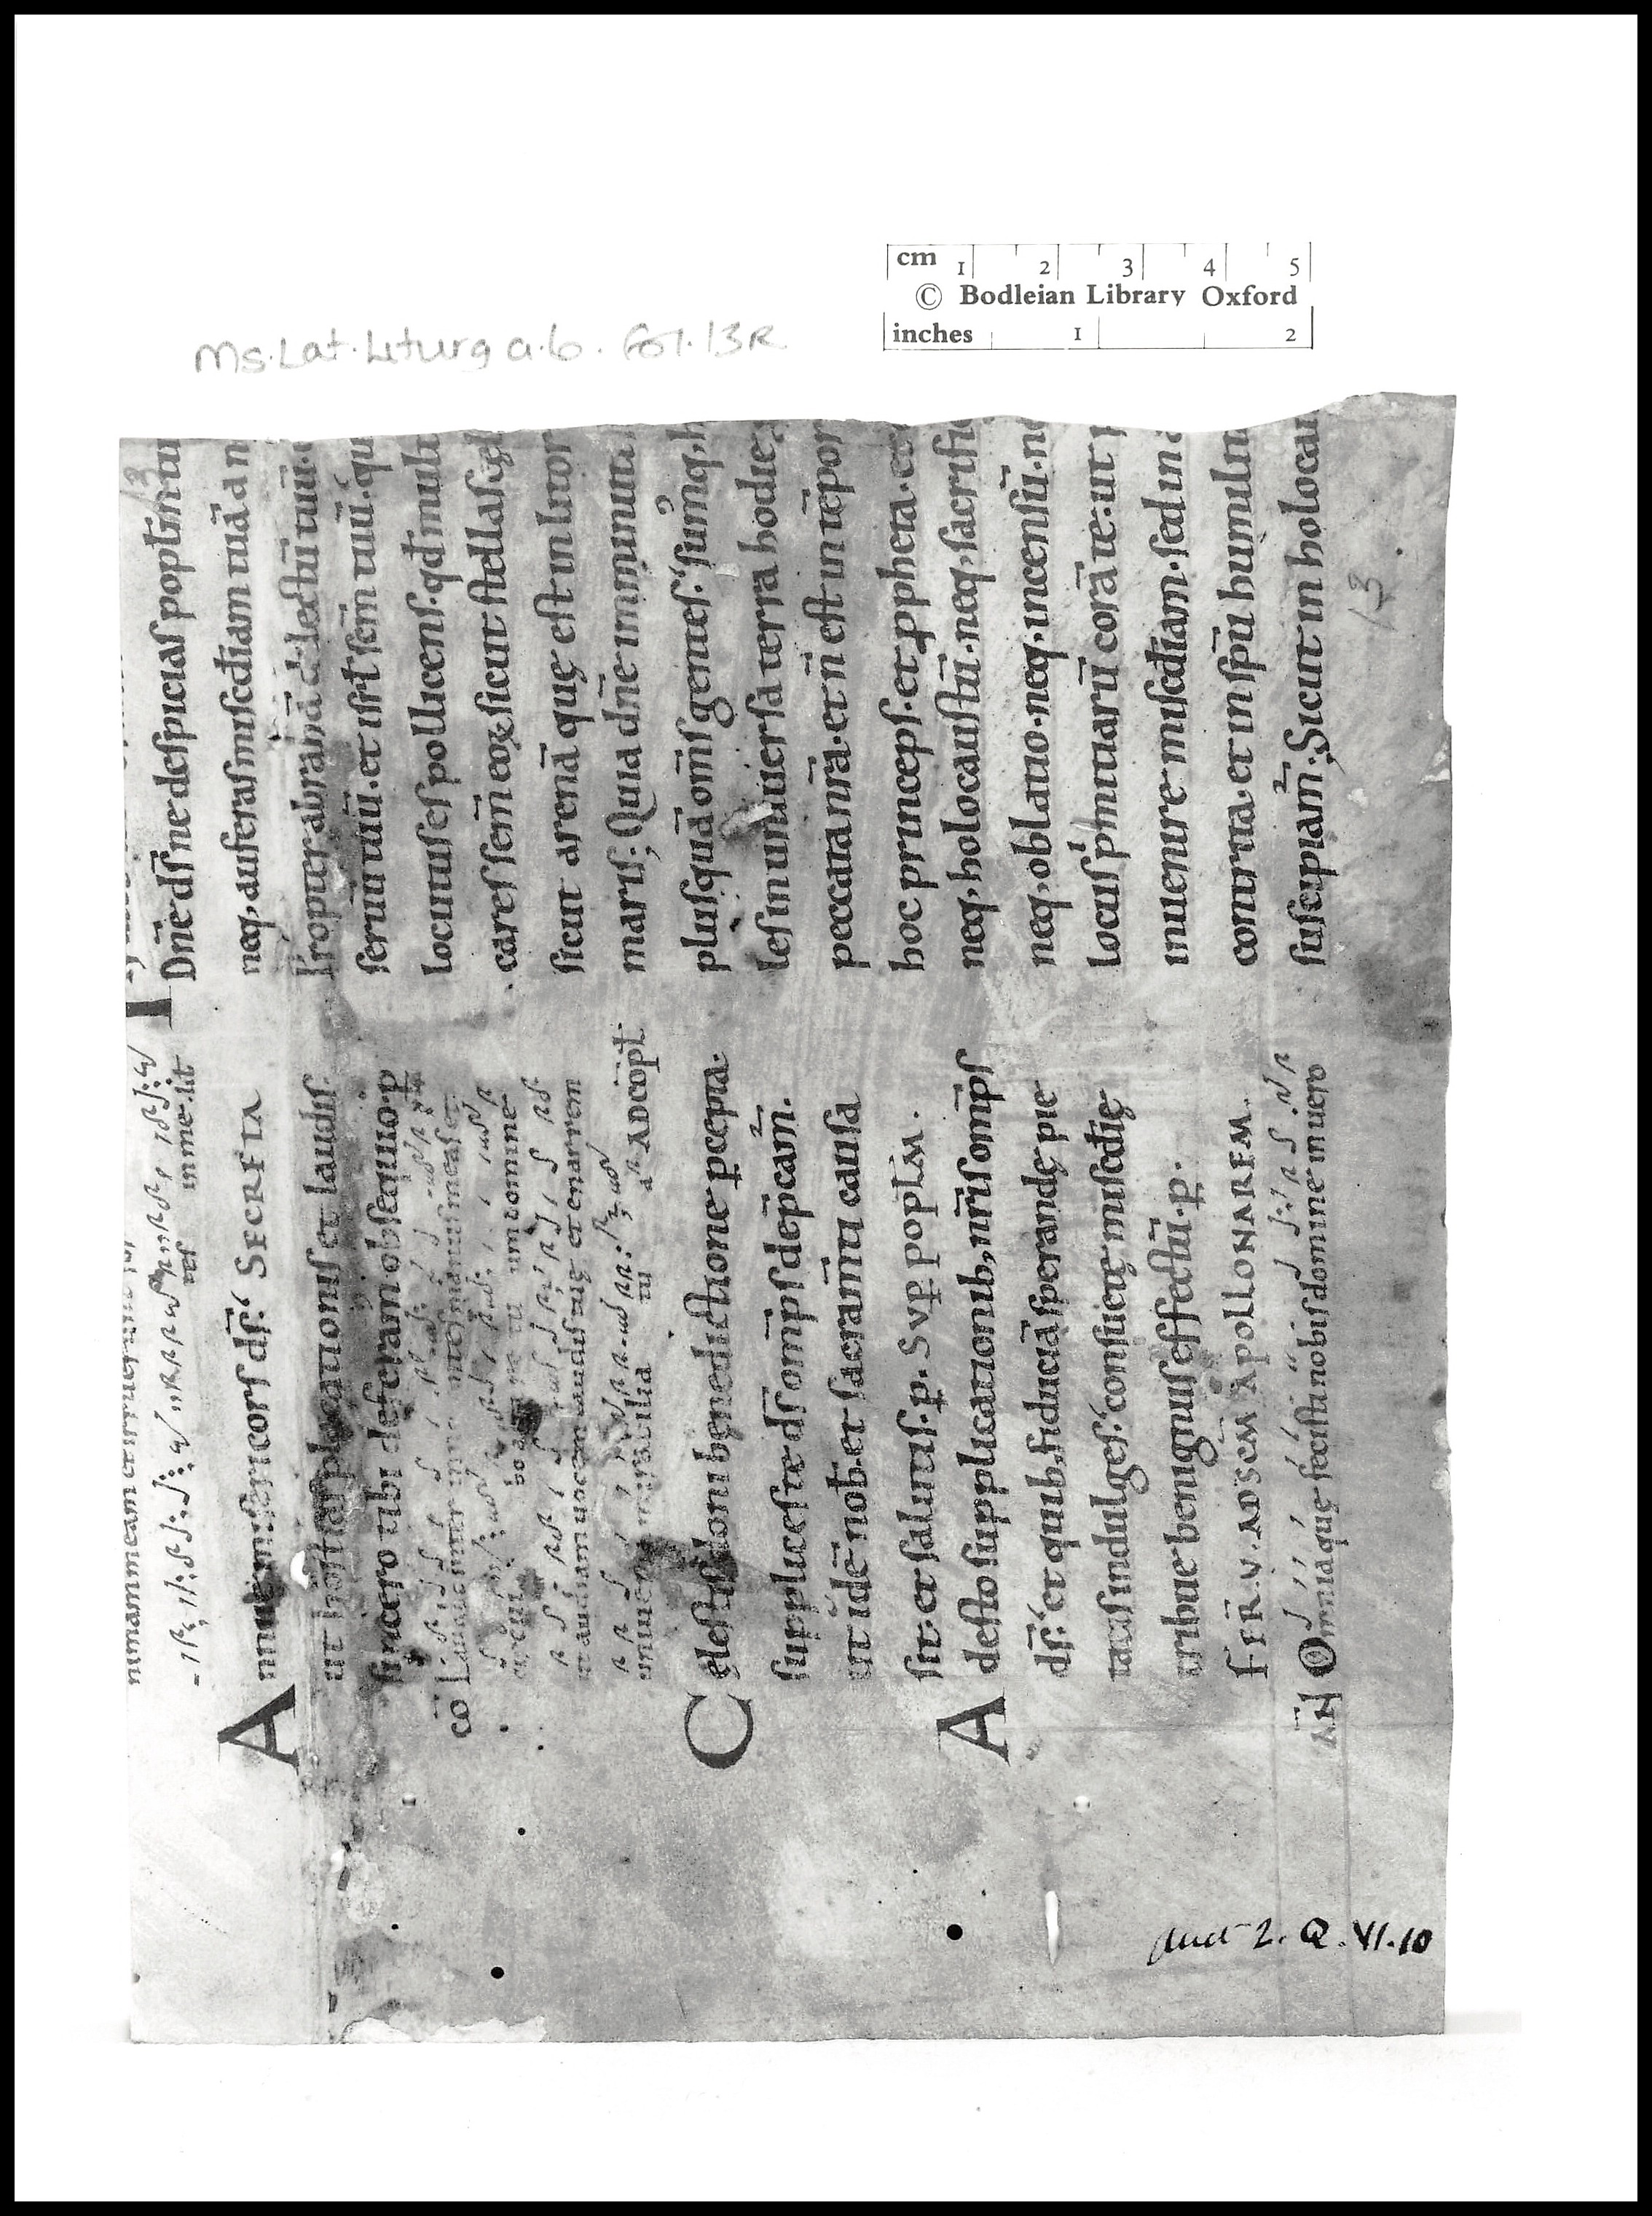 cm 1 2 3 4 5
© Bodleian Library Oxford
inches 1 2
Ms. Lat. Liturg a.6. fol. 13R
13
nimam meam et irruerunt
uef in me lit
Annue miſericorſ dſ̄. SECRETA
ut hoſtiaſ placationiſ et laudiſ.
ſincero tibi deferam obſequio. p
cō Lauabo inter inno manuſ meaſ et
do altare tu um domine
ut audiam uocem laudiſ tuę et enarrem
uniuerſa mirabilia tu a ADCŌPL̄.
Cęleſtiſ doni benedictione pcepta.
ſuppliceſ te dſ̄ omp̄ſ dep̄cam̄.
ut idē nob̄. et ſacram̄ti cauſa
ſit. et ſalutiſ. p. SVP POPLM̄.
Adeſto ſupplicationib, nr̄iſ omp̄ſ
dſ̄. et quib, fiduciā ſperandę pie
tatiſ indulgeſ. conſuetę miſcdīę
tribue benignuſ effectū. p.
FER̄. V. AD SC̄M APOLLONAREM.
AN̄ Omnia quę feciſti nobiſ domine in uero
Dn̄e dſ̄ ne deſpiciaſ popl̄m tu
neq, auferaſ miſcdīam tuā a n
Propter abrahā dilectū tuū.
ſeruū tuū. et iſrl̄ ſcm̄ tuū. qu
locutuſ eſ pollicenſ. qd̄ multi
careſ ſem̄ eoꝝ ſicut ſtellaſ cęl
ſicut arenā quę eſt in litor
mariſ. Quia dn̄e imminuti
pluſquā om̄ſ genteſ. ſumq, h
leſ in uniuerſa terra hodie
peccata nr̄a. et n̄ eſt in tēpor
hoc princepſ. et ppheta. et
neq, holocauſtū. neq, ſacrifi
neq, oblatio. neq. incenſū. n
locuſ pmitiarū corā te. ut
inuenire miſcdīam. ſed in a
contrita. et in ſpū humili
ſuſcipiam̄. Sicut in holocau
13
Auct 2. Q. VI. 10